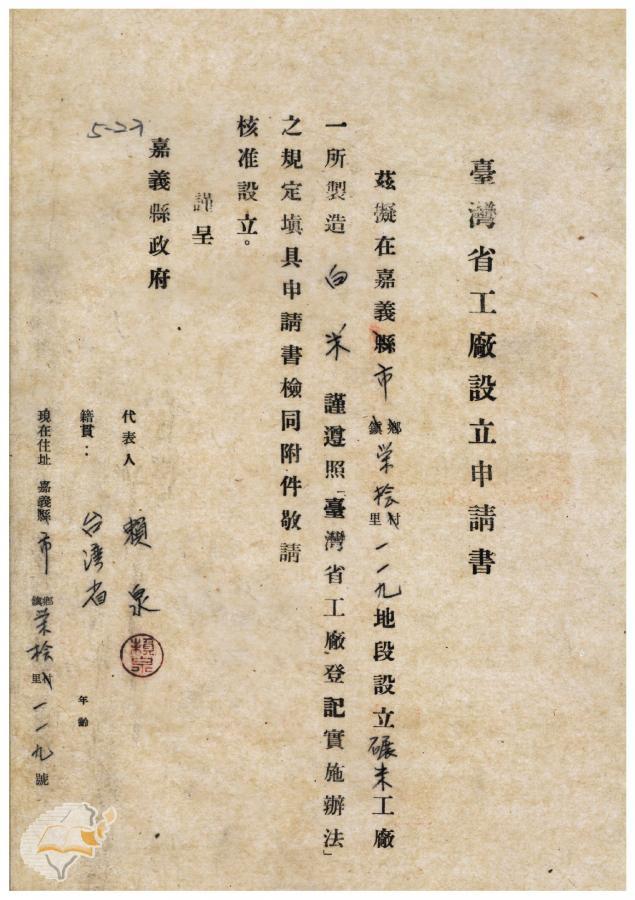 臺灣省工廠設立申請書
茲擬在嘉義縣市鄉鎮榮檜村里一一九地段設立碾米工廠
一所製造白米謹遵照「臺灣省工廠登記實施辦法」
之規定填具申請書檢同附件敬請
核准設立。
謹呈
嘉義縣政府
5-27
代表人 賴泉
賴泉
籍貫：台灣省 年齡
現在住址 嘉義縣市鄉鎮榮檜村里一一九號